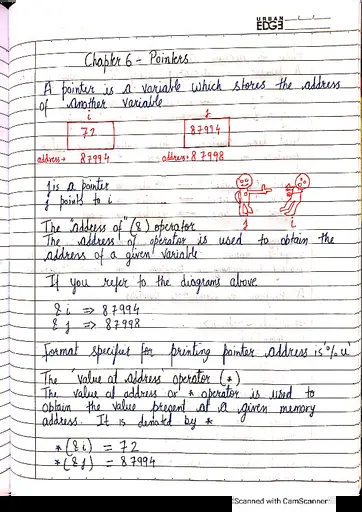 URBAN
EDGE
Chapter 6 - Pointers
A pointer is a variable which stores the address
of another variable
i j
72 87994
address→ 87994 address→ 87998
j is a pointer
j points to i
j i
The "address of" (&) operator
The address of operator is used to obtain the
address of a given variable
If you refer to the diagrams above
& i => 87994
& j => 87998
Format specifier for printing pointer address is '%u'
The 'value at address' operator (*)
The value at address or * operator is used to
obtain the value present at a given memory
address. It is denoted by *
*(&i) = 72
*(&j) = 87994
Scanned with CamScanner